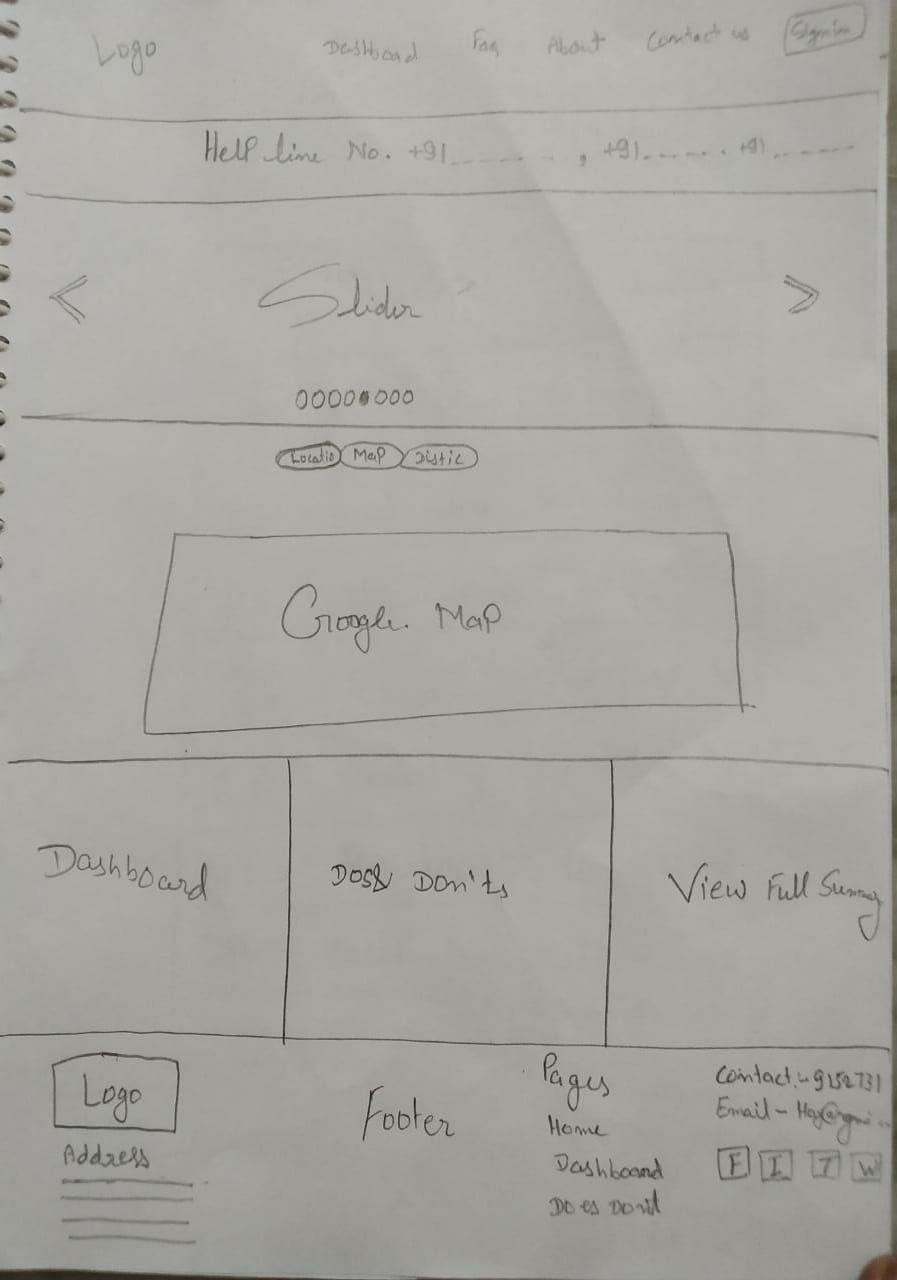 Logo Dashboad Faq About Contact us Signin
Help line No. +91_______, +91______. +91_______
< Slider >
0000●000
Locatio Map Distic
Google Map
Dashboard Dos& Don'ts View Full Summay
Logo
Address
Footer
Pages
Home
Dashboard
Do es Don't
Contact:- 9152731
Email -
F I T W